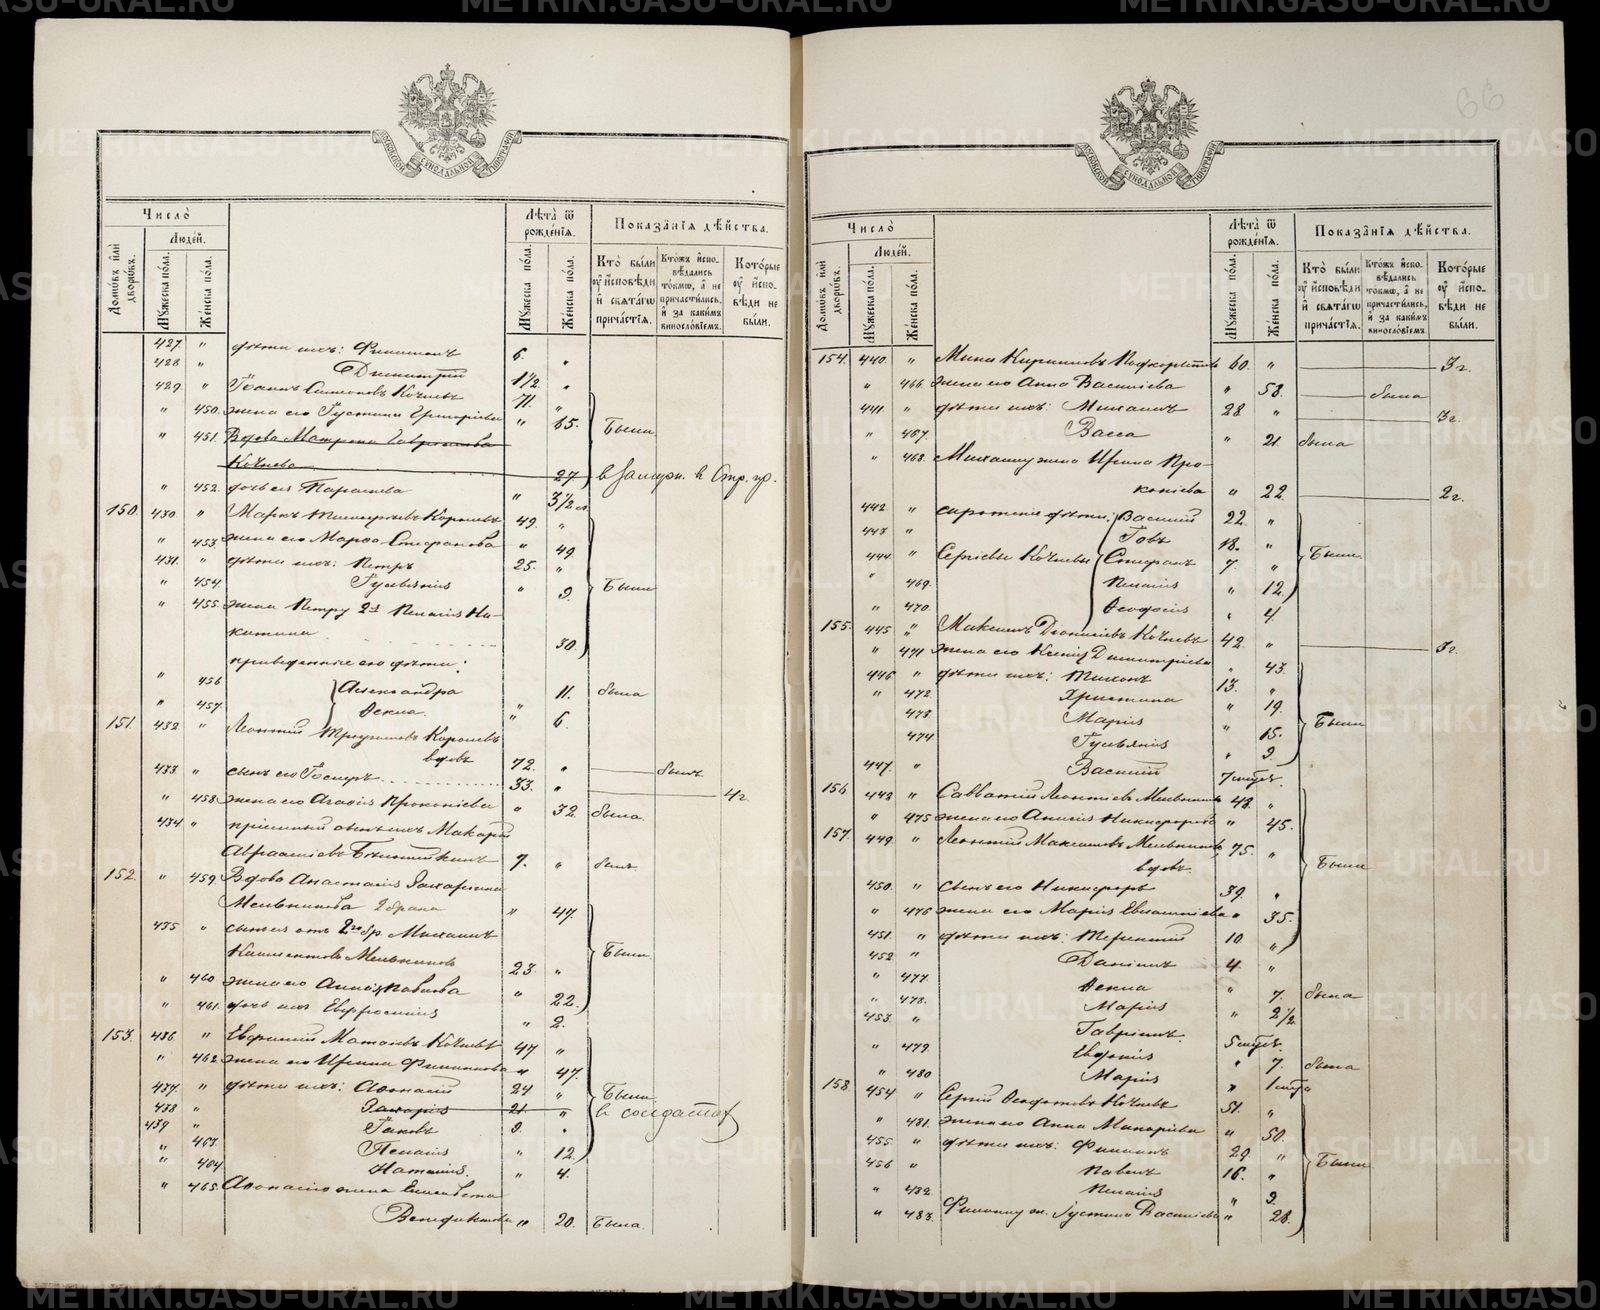 66
МОСКОВСКОЙ СѴНОДАЛЬНОЙ ТИПОГРАФІИ
Число̀
Людей.
Лѣта̀ ѿ рожденїѧ.
Показанїѧ дѣйства.
Домѡвъ и҆лѝ дворѡвъ.
Мꙋжеска пола.
Женска пола.
Мꙋжеска пола.
Женска пола.
Кто̀ были ᲂу҆ и҆сповѣди и҆ свѧтагѡ причастїѧ.
Ктожъ и҆споведались токмѡ, а҆ не причастились, и҆ за какимъ винословїемъ.
Которые ᲂу҆ и҆сповѣди не были.
427. " дѣти ихъ: Филимонъ 6. "
428 " Димитрій 1½. "
429. " Іоаннъ Симеоновъ Кочневъ 71. "
" 450. жена его Іустина Григоріева " 65. Были
" 451. Вдова Матрона
Кочнева 27 в замуж. в
" 452. дочь ея Параскева " 3½
150. 430. " Маркъ Королевъ 49. "
" 453. жена его Марѳа Стефанова " 49
431. " дѣти ихъ: Петръ 25. "
" 454. Іуліанія " 9. Были
" 455. жена Петру 2я Пелагія Ни-
китина 30.
приведенные его дѣти:
" 456 Александра 11. была
" 457. Ѳекла. " 6.
151. 432. " Леонтій Королевъ
вдовъ 72. " былъ
433 " сынъ его 33. " 4 г.
" 458. жена его Агафія Прокопіева " 32. была.
434 " пріемный сынъ ихъ Макарій
7. " былъ
152. " 459. Вдова Анастасія Захаріина
Мельникова 2 брака " 47.
435 " сынъ ея отъ 2го бр. Михаилъ
Климентовъ Мельниковъ 23. " Были
" 460 жена его Анна Павлова " 22.
" 461. дочь ихъ Евфросинія " 2.
153. 436. " Евфимій Матѳіевъ Кочневъ 47 "
" 462. жена его Ирина Филиппова " 47.
437. " дѣти ихъ: Аѳанасій 24 " Были
438 " Захарія 21. " в солдатах
439 " Іаковъ 9. "
" 463. Пелагія " 12.
" 464 Наталія. " 4.
" 465. Аѳанасію жена Елисавета
Венедиктова " 20. Была.
Число̀
Людей.
Лѣта̀ ѿ рожденїѧ.
Показанїѧ дѣйства.
Домѡвъ и҆лѝ дворѡвъ.
Мꙋжеска пола.
Женска пола.
Мꙋжеска пола.
Женска пола.
Кто̀ были ᲂу҆ и҆сповѣди и҆ свѧтагѡ причастїѧ.
Ктожъ и҆споведались токмѡ, а҆ не причастились, и҆ за какимъ винословїемъ.
Которые ᲂу҆ и҆сповѣди не были.
154. 440. " Мина Кирилловъ 60. " 3 г.
" 466. жена его Анна Василіева " 58. была
441. " дѣти ихъ: Михаилъ 28 " 3 г.
" 467. Васса " 21. была
" 468. Михаилу жена Ирина Про-
копіева " 22. 2 г.
442 " сиротскія дѣти: Василій 22. "
443 " Іовъ 18. "
444. " Сергіевы Кочневы Стефанъ 7. " Были
" 469. Пелагія " 12.
" 470. Ѳеодосія " 4.
155. 445 " Максимъ Діонисіевъ Кочневъ 42. " 3 г.
" 471 жена его Ксенія Димитріева " 43.
446 " дѣти ихъ: Тихонъ 13. "
" 472 Христина " 19.
473 Марія " 15. Были
474 Іуліанія " 9.
447. " Василій 7 мцъ
156 448 " Савватій Леонтіевъ Мельниковъ 48. "
" 475 жена его Анисія Никифорова " 45.
157. 449. " Леонтій Максимовъ Мельниковъ,
вдовъ 75. " Были
450. " сынъ его Никифоръ 39. "
" 476 жена его Марія " 35.
451. " дѣти ихъ: Терентій 10 "
452 " Даніилъ 4. "
" 477. Ѳекла " 7. была
" 478. Марія " 2½
453. " Гавріилъ 5 мцъ
" 479. Евдокія " 7. была
" 480 Марія " 1 мцъ
158. 454 " Сергій Ѳеодотовъ Кочневъ 51. "
" 481. жена его Анна Макаріева " 50.
455. " дѣти ихъ: Филиппъ 29 "
456 " Павелъ 16. " Были
" 482. Пелагія " 9.
" 483. Филиппу ж. Іустина Василіева " 28.
METRIKI.GASO-URAL.RU